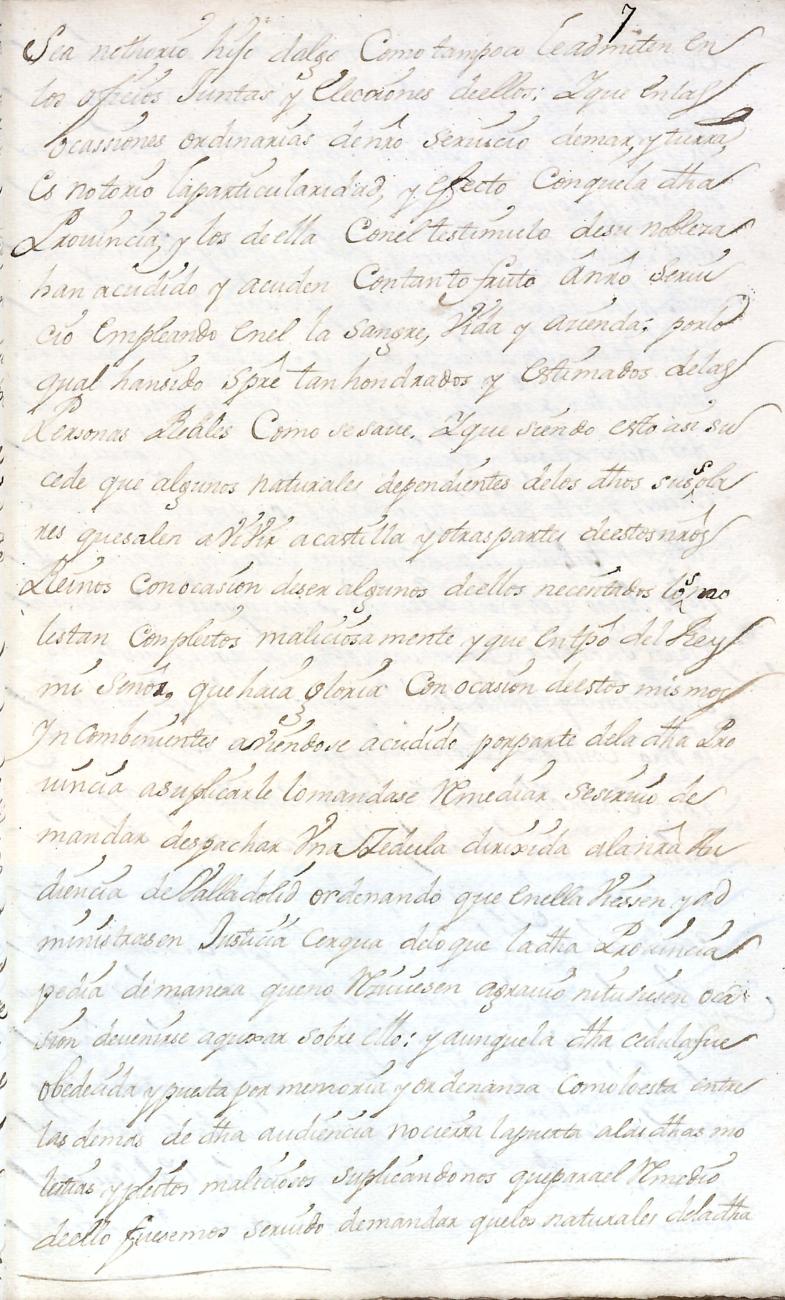 7
Sea nothorio hijo dalgo Como tampoco le admiten en
los ofiçios Juntas y Elecciones de ellos: Y que en las
ocassiones ordinarias de nro seruicio de mar, y tierra,
es notorio la particularidad, y efecto Con que la dha
Prouincia, y los de ella Con el testimulo de su nobleza
han acudido y acuden Con tanto fruto a nro serui
cio empleando en el la sangre, Vida y acienda: por lo
qual han sido spre tan hondrados y estimados de las
Personas Reales Como se saue. Y que siendo esto asi su
cede que algunos naturales dependientes de los dhos sus sola
res que salen a ViVir a castilla y otras partes de estos nros
Reinos con ocasion de ser algunos de ellos necentados los mo
lestan Con pleitos maliciosamente y que en tpo del Rey
mi Señor, que haia gloria Con ocasion de estos mismos
Yncombenientes aViendose acudido por parte de la dha Pro
uincia a suplicarle lo mandase Remediar se siruio de
mandar despachar Vna Zedula dirixida a la nra Au
diencia de Valladolid ordenando que en ella Viessen y ad
ministrasen Justicia cerqua de lo que la dha Prouincia
pedia de manera que no Reziuiesen agrauio ni tuuiesen oca
sion de venirse a quexar sobre ello: y aunque la dha cedula fue
obedecida y puesta por memoria y ordenanza Como lo esta entre
las demas de dha audiencia no cierra la puerta a las dhas mo
lestias y pleitos maliciosos suplicandonos que para el Remedio
de ello fuesemos seruido de mandar que los naturales de la dha